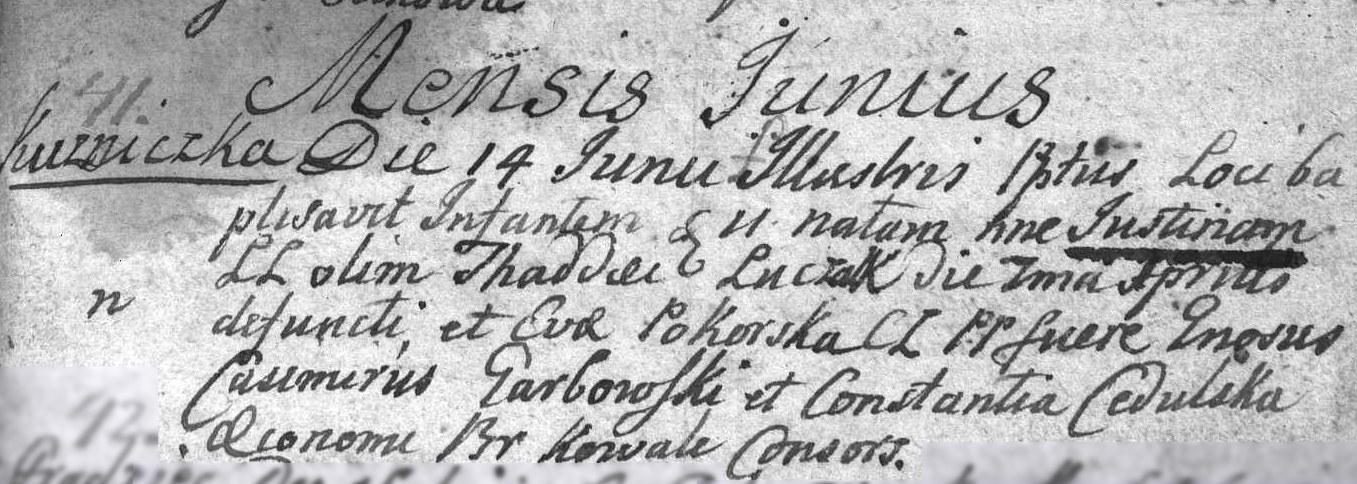 Mensis Junius
41.
Kuzniczka Die 14 Junii Illustris Pptus Loci ba
ptisavit Infantem natam nne Justinam
LL olim Thaddæi Luczak die 7ma
n
defuncti, et Evæ Pokorska CL PP fuere Gnosus
Casimirus Garbowski et Constantia Cedulska
Œconomi Kowale Consors.